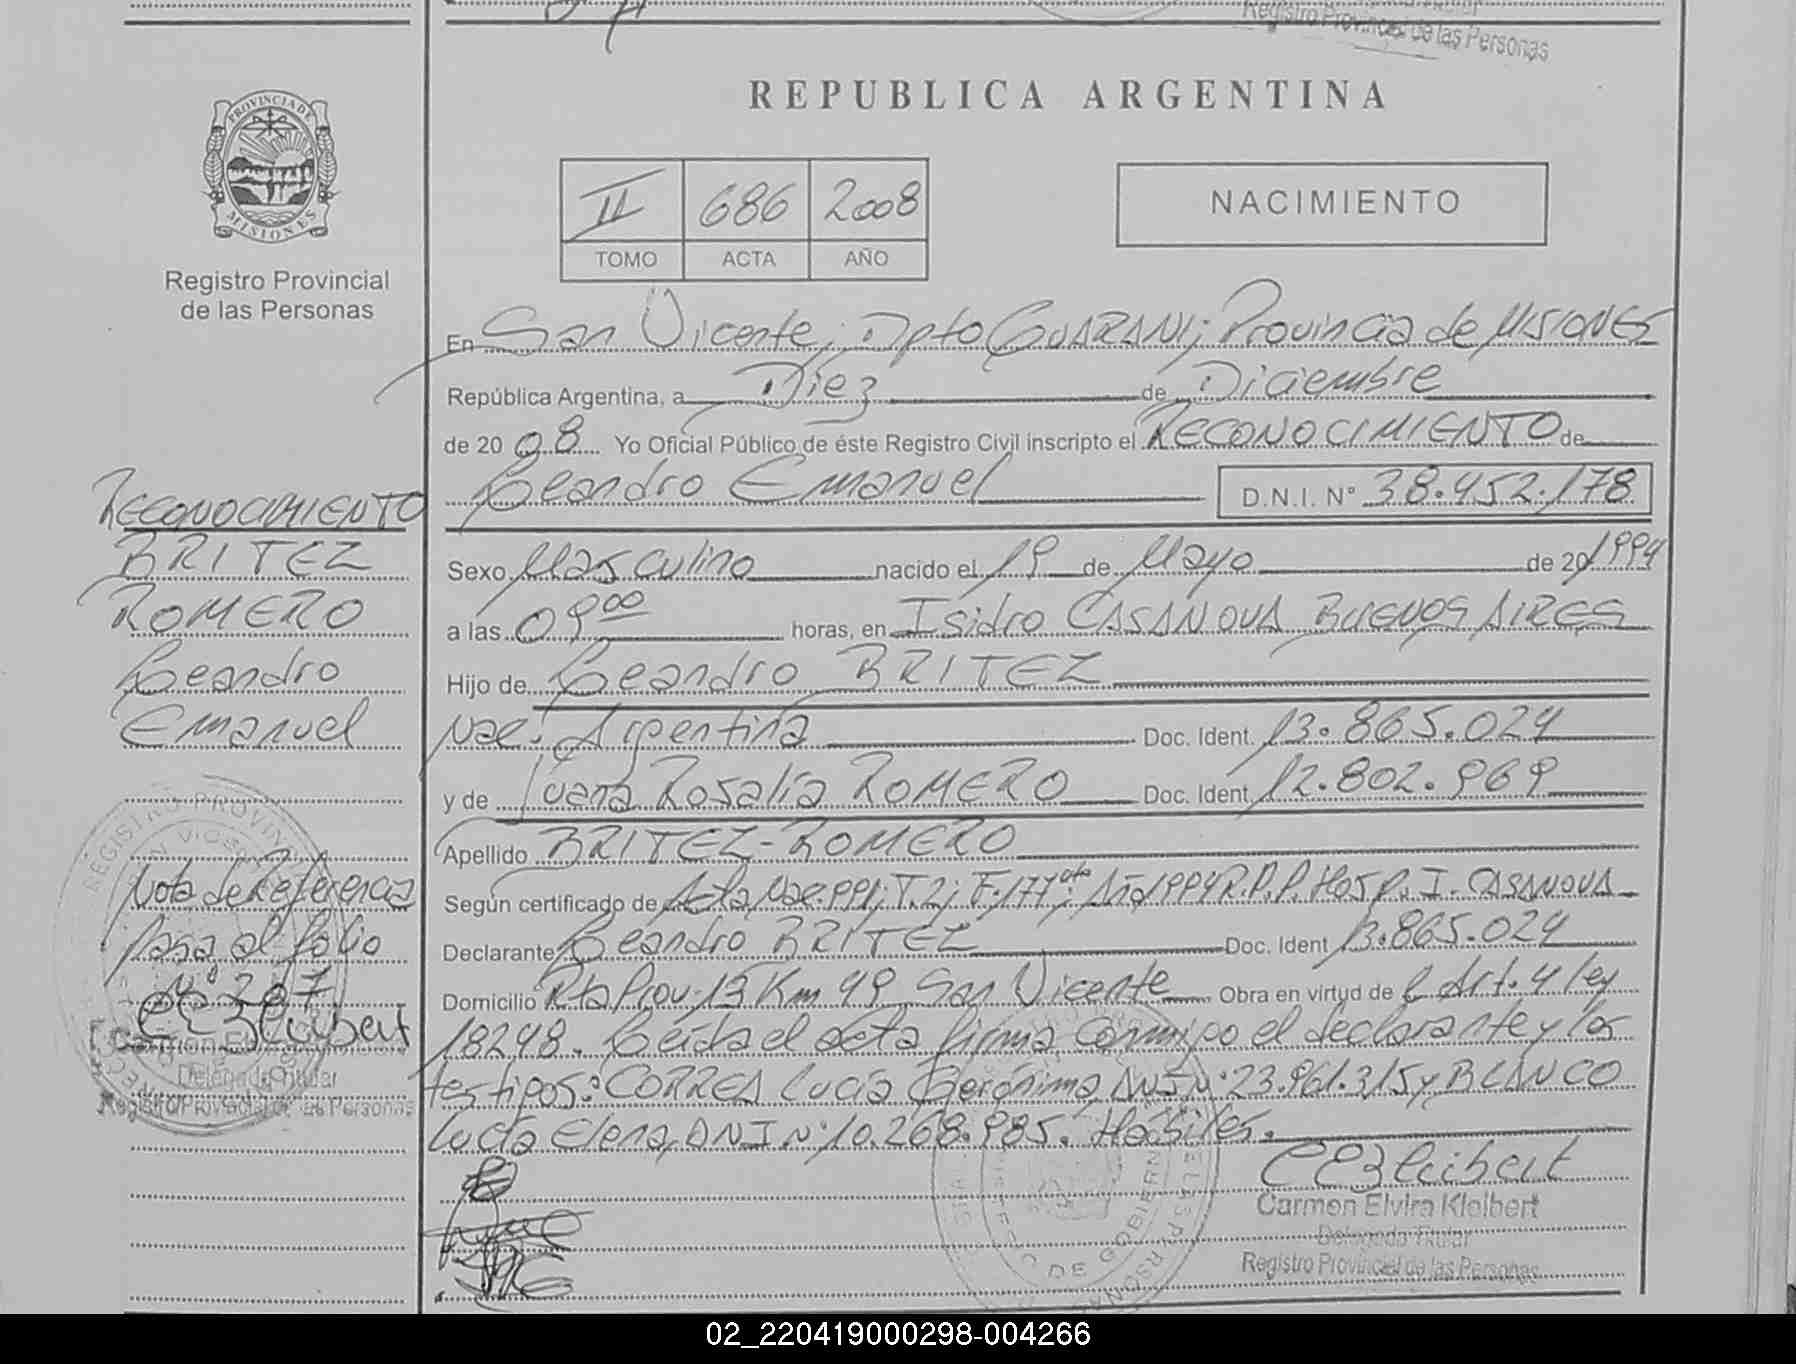 Registro Provincial de las Personas
REPUBLICA ARGENTINA
PROVINCIA DE
MISIONES
Registro Provincial
de las Personas
II 686 2008
TOMO ACTA AÑO
NACIMIENTO
En San Vicente; Dpto GUARANI; Provincia de MISIONES
República Argentina, a Diez de Diciembre
de 20 08 Yo Oficial Público de éste Registro Civil inscripto el RECONOCIMIENTO de
Leandro Emanuel D.N.I. Nº 38.452.178
Sexo Masculino nacido el 19 de Mayo de 20/1994
a las 09 00 horas, en Isidro CASANOVA BUENOS AIRES
Hijo de Leandro BRITEZ
Nac. Argentina Doc. Ident. 13.865.024
y de Juana Rosalía ROMERO Doc. Ident 12.802.969
Apellido BRITEZ-ROMERO
Según certificado de Acta Nac. 991; T.2; F.177 Año 1994 R.P.P. Hosp. I. CASANOVA
Declarante Leandro BRITEZ Doc. Ident 13.865.024
Domicilio Rta Prov. 13 Km 49 San Vicente Obra en virtud de l Art. 4 ley
18248. Leída el acta firma conmigo el declarante y los
testigos: CORREA Lucía Gerónima, DNI Nº 23.961.315 y BLANCO
Lucía Elena, DNI Nº 10.268.985. Hábiles.
Carmen Elvira Kleibert
Delegada Titular
Registro Provincial de las Personas
RECONOCIMIENTO
BRITEZ
ROMERO
Leandro
Emanuel
Nota de Referencia
pasa al folio
Nº 287
Carmen Elvira
Delegada Titular
Registro Provincial de las Personas
02_220419000298-004266